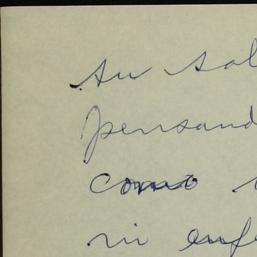 su sal
pensand
como
ni enfe